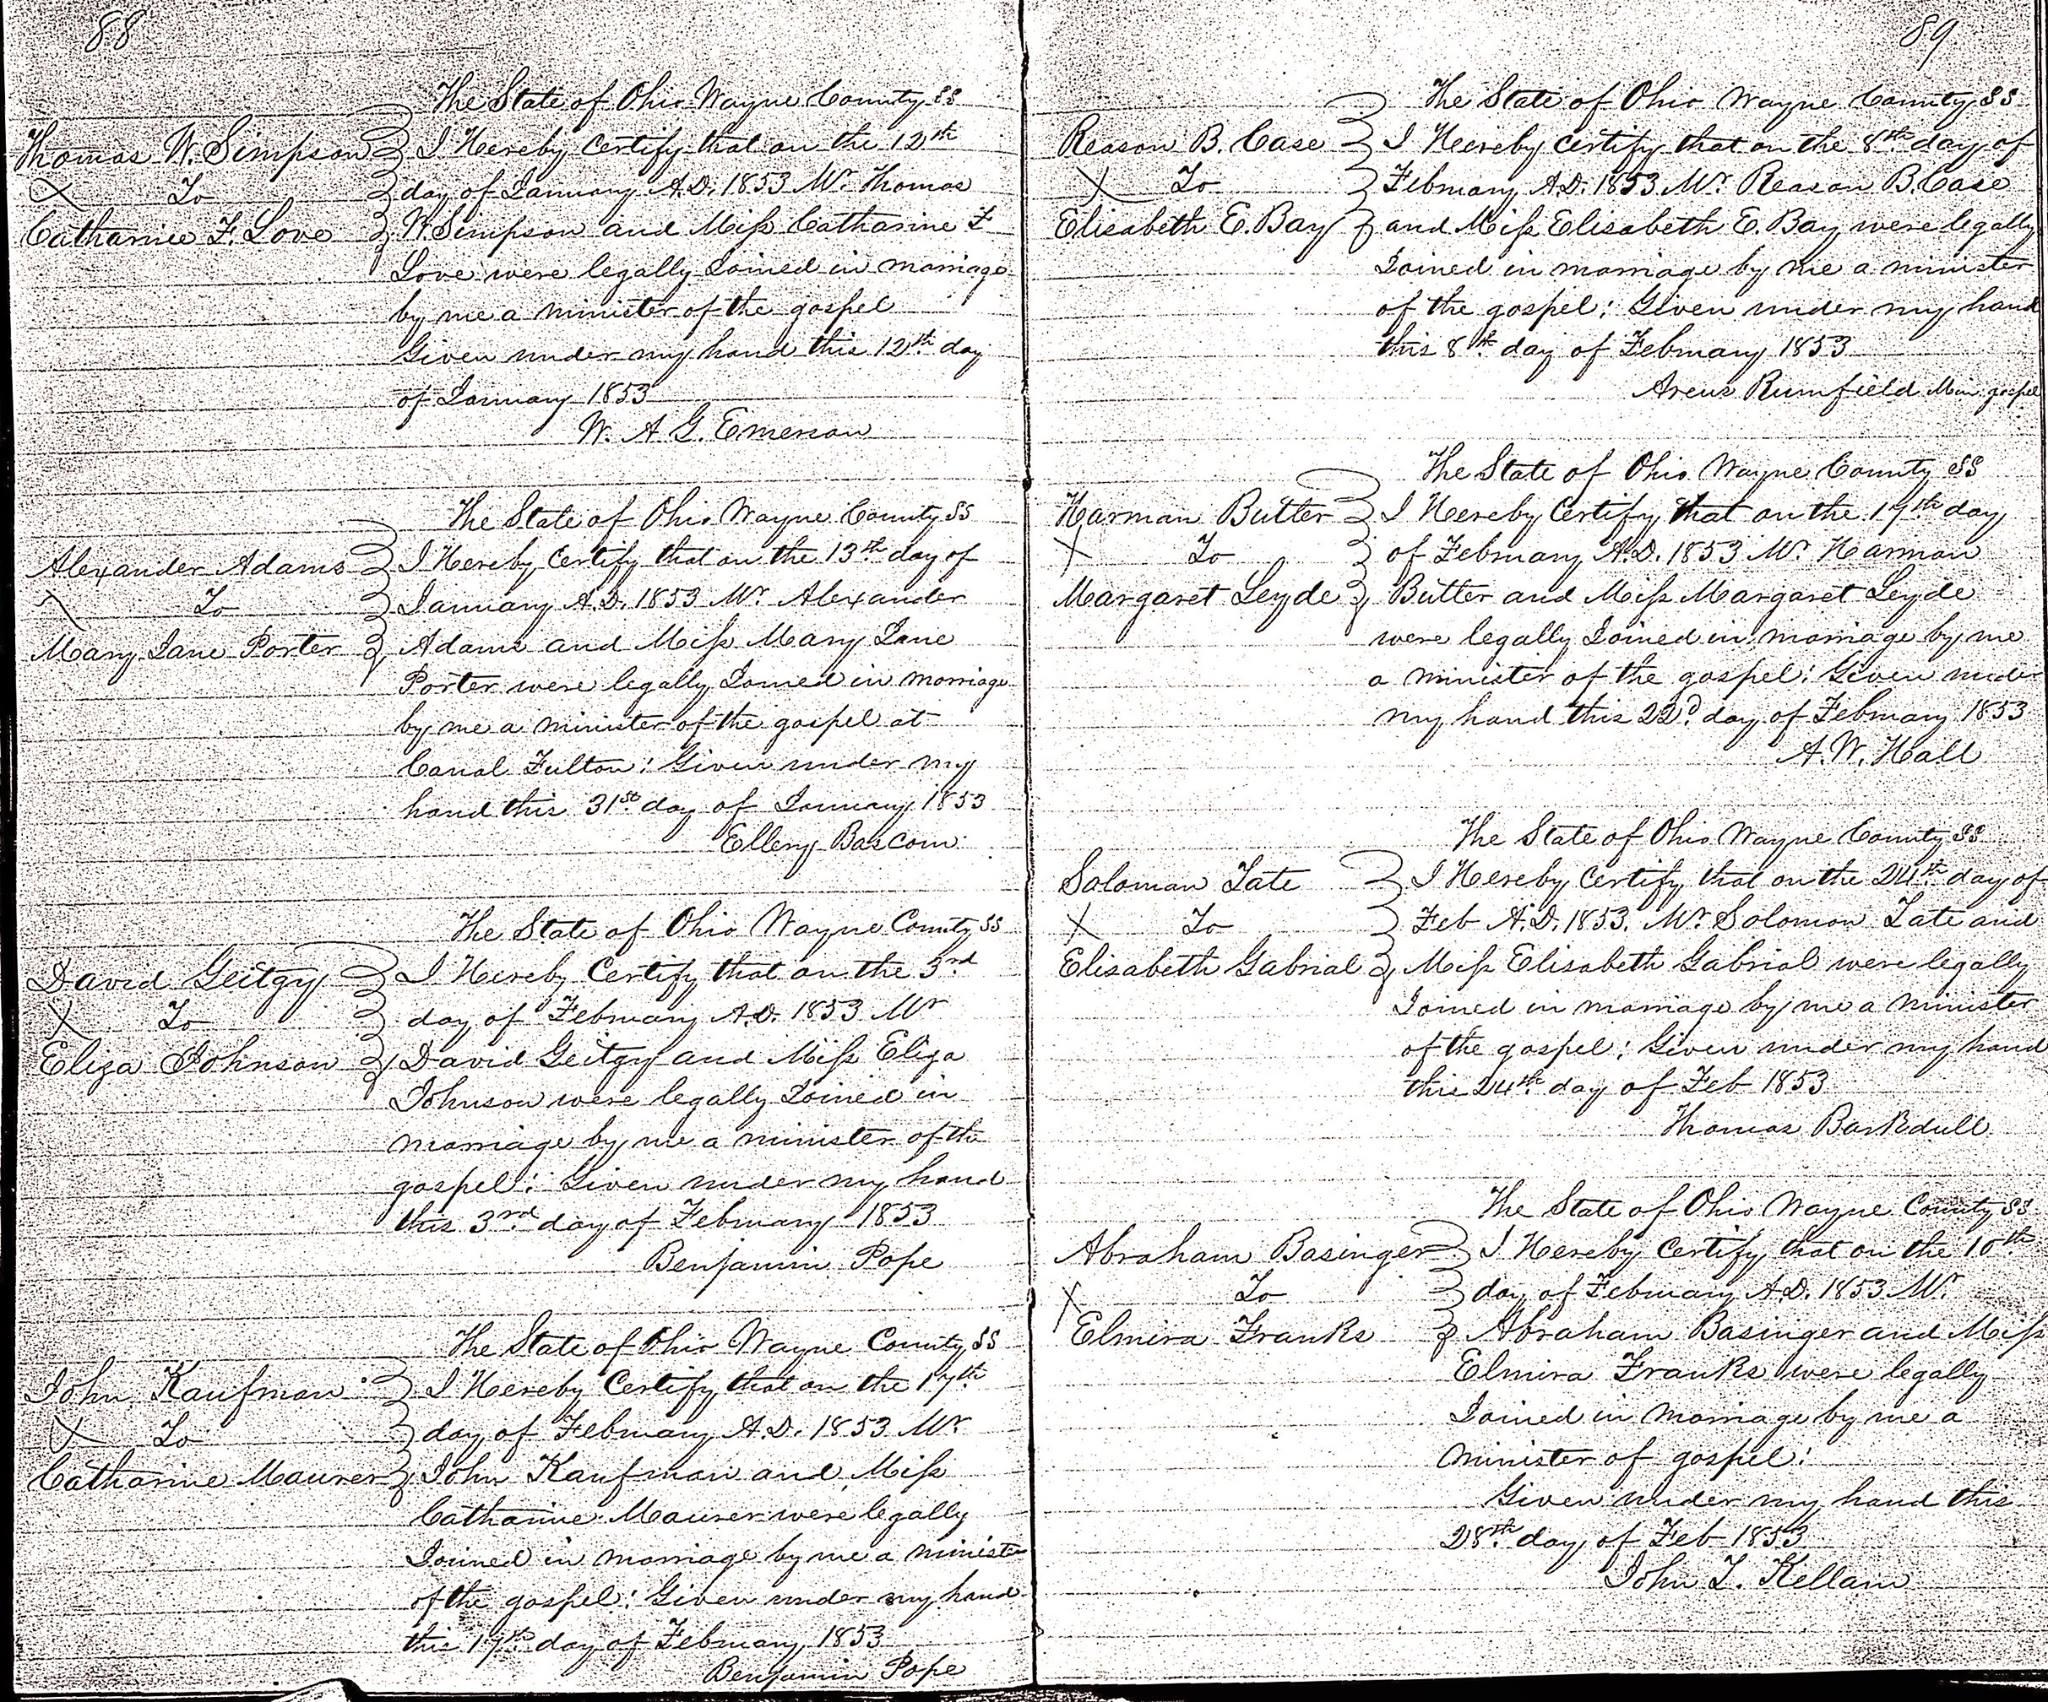 88
The State of Ohio Wayne County SS
Thomas W. Simpson I Hereby Certify that on the 12th
X To day of January A.D. 1853 Mr Thomas
Catharine F. Love W. Simpson and Miss Catharine F
Love were legally Joined in marriage
by me a minister of the gospel
Given under my hand this 12th day
of January 1853
W. A G. Emerson
The State of Ohio Wayne County SS
Alexander Adams I Hereby Certify that on the 13th day of
X To January A.D. 1853 Mr Alexander
Mary Jane Porter Adams and Miss Mary Jane
Porter were legally Joined in marriage
by me a minister of the gospel at
Canal Fulton: Given under my
hand this 31st day of January 1853
Ellery Bascom
The State of Ohio Wayne County SS
David Geitgy I Hereby Certify that on the 3rd
X To day of February A.D. 1853 Mr
Eliza Johnson David Geitgy and Miss Eliza
Johnson were legally Joined in
marriage by me a minister of the
gospel: Given under my hand
this 3rd day of February 1853
Benjamin Pope
The State of Ohio Wayne County SS
John Kaufman I Hereby Certify that on the 17th
X To day of February A.D. 1853 Mr
Catharine Maurer John Kaufman and Miss
Catharine Maurer were legally
Joined in marriage by me a minister
of the gospel: Given under my hand
this 17th day of February 1853
Benjamin Pope
89
The State of Ohio Wayne County SS
Reason B. Case I Hereby Certify that on the 8th day of
X To February A.D. 1853 Mr Reason B. Case
Elisabeth E. Bay and Miss Elisabeth E. Bay were legally
Joined in marriage by me a minister
of the gospel: Given under my hand
this 8th day of February 1853
Areus Rumfield Min gospel
The State of Ohio Wayne County SS
Harman Butter I Hereby Certify that on the 17th day
X To of February A.D. 1853 Mr Harman
Margaret Leyde Butter and Miss Margaret Leyde
were legally Joined in marriage by me
a minister of the gospel: Given under
my hand this 22d day of February 1853
A. W. Hall
The State of Ohio Wayne County SS
Soloman Tate I Hereby Certify that on the 24th day of
X To Feb A.D. 1853. Mr Solomon Tate and
Elisabeth Gabrial Miss Elisabeth Gabrial were legally
Joined in marriage by me a minister
of the gospel: Given under my hand
this 24th day of Feb 1853
Thomas Barkdull
The State of Ohio Wayne County SS
Abraham Basinger I Hereby Certify that on the 10th
X To day of February A.D. 1853 Mr.
Elmira Franks Abraham Basinger and Miss
Elmira Franks were legally
Joined in marriage by me a
minister of gospel:
Given under my hand this
28th day of Feb 1853
John L. Kellam